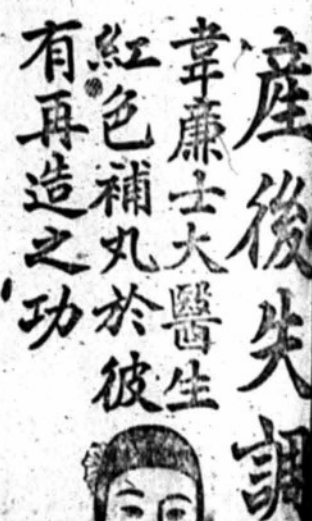 產後失調
韋廉士大醫生
紅色補丸於彼
有再造之功